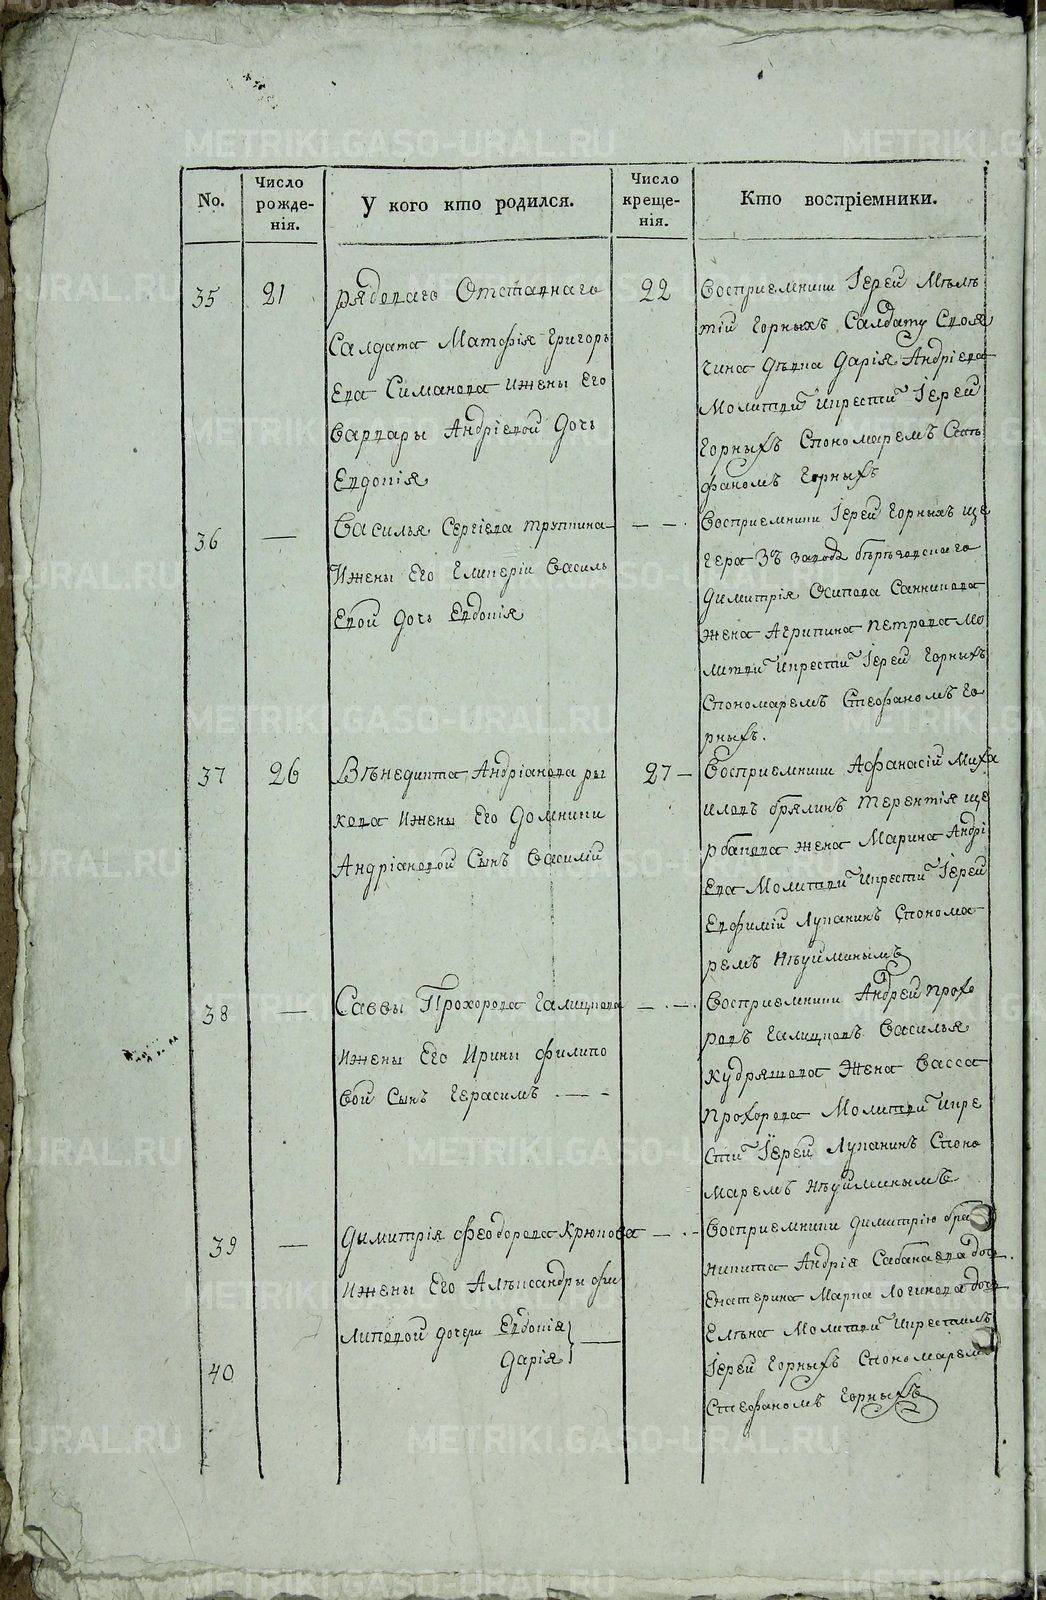 METRIKI.GASO-URAL.RU
No.
Число рожде- нія.
У кого кто родился.
Число креще- нія.
Кто воспріемники.
35
21
рядоваго Отставнаго
Салдата Матфія Григорь
Ева Симанова ижены Его
Варвары Андріевой дочь
Евдокія
22
Восприемники Іерей Мѣле
тій Горныхъ Салдату
дѣвка Дарія Андріева
Молитви и крести Іерей
Горныхъ Спономаремъ Сте
фаномъ Горныхъ
36
—
Василья Сергіева
Ижены Его Гликеріи Василь
Евой дочь Евдокія
— —
Восприемники Іерей Горныхъ
Димитрія Осипова Санникова
жена Агрипина Петрова Мо
литви и крести Іерей Горныхъ
Спономаремъ Стефаномъ Го
рныхъ.
37
26
Вѣнедикта Андріанова ры
кова ижены Его Домники
Андріановой Сынъ Василій
27 —
Восприемники Афанасій Миха
иловъ брялинъ Терентія ще
рбакова жена Марина Андрі
Ева Молитви и крести Іерей
Ефимій Лупанинъ Спонома
ремъ Нѣуйминымъ
38
—
Саввы Прохорова Галицкова
ижены Его Ирины Филипо
вой Сынъ Герасимъ
— —
Восприемники Андрей Прохо
ровъ Галицковъ Василья
Кудряшова Жена Васса
Прохорова Молитви и кре
сти Іерей Лупанинъ Споно
маремъ Нѣуйминымъ
39
—
Димитрія Феодорова Крюкова
ижены Его Алѣксандры Фи
липовой дочери Евдокія
Дарія
40
— —
Восприемники Димитрію
Никита Андрія Сабанаева дочь
Екатерина Марка Логинова дочь
Елѣна Молитви и крестилъ
Іерей Горныхъ Спономаремъ
Стефаномъ Горныхъ